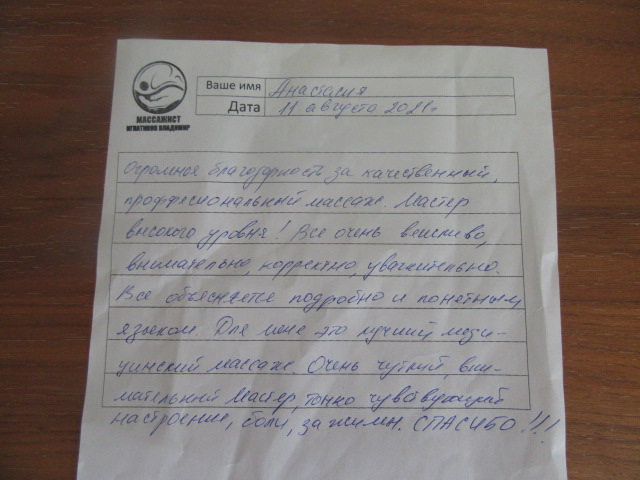 МАССАЖИСТ
ИГНАТИКОВ ВЛАДИМИР
Ваше имя Анастасия
Дата 11 августа 2021г
Огромное благодарность за качественный,
проффесиональный массаж. Мастер
высокого уровня! Все очень вежливо,
внимательно, корректно, уважительно.
Все объясняете подробно и понятным
языком. Для меня это лучший меди-
цинский массаж. Очень чуткий вни-
мательный Мастер, тонко чувствующий
настроение, боли, зажимы. СПАСИБО!!!